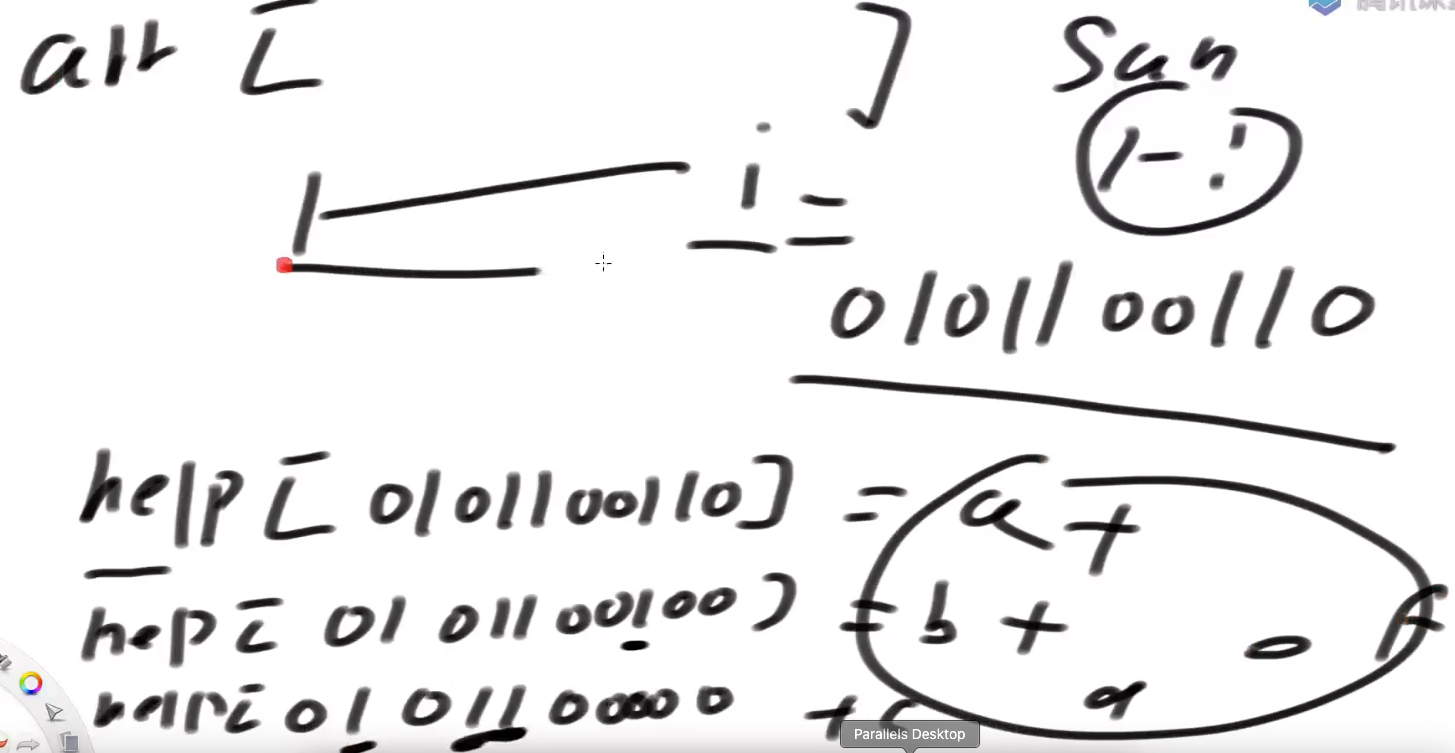 arr [ ] sum
1 — i = 1-i
01011001110
help [ 01011001110] = a +
help [ 01011001100 ] = b +
help [ 01011000000 + c d
Parallels Desktop